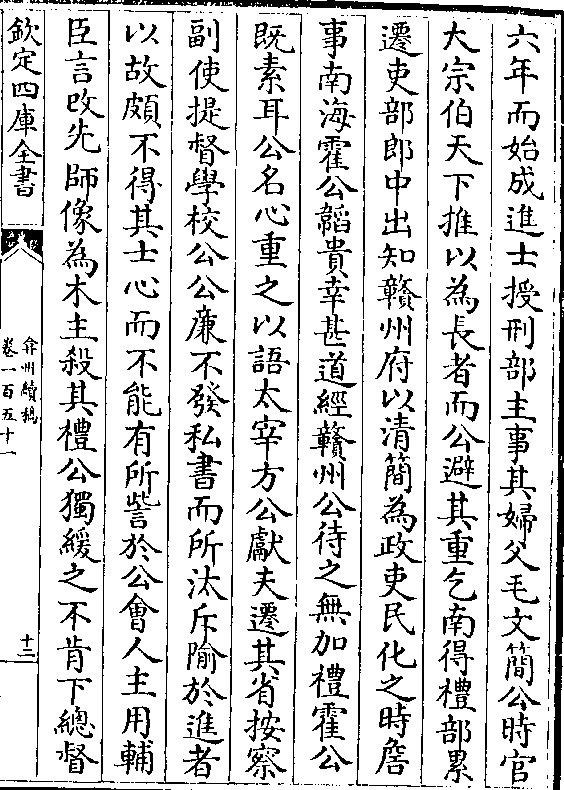 六年而始成進士授刑部主事其婦父毛文簡公時官
大宗伯天下推以為長者而公避其重乞南得禮部累
遷吏部郎中出知贛州府以清簡為政吏民化之時詹
事南海霍公韜貴幸甚道經贛州公待之無加禮霍公
既素耳公名心重之以語太宰方公獻夫遷其省按察
副使提督學校公公廉不發私書而所汰斥隃於進者
以故頗不得其士心而不能有所訾於公會人主用輔
臣言改先師像為木主殺其禮公獨緩之不肯下總督
欽定四庫全書
弇州續稿
卷一百五十一
十二